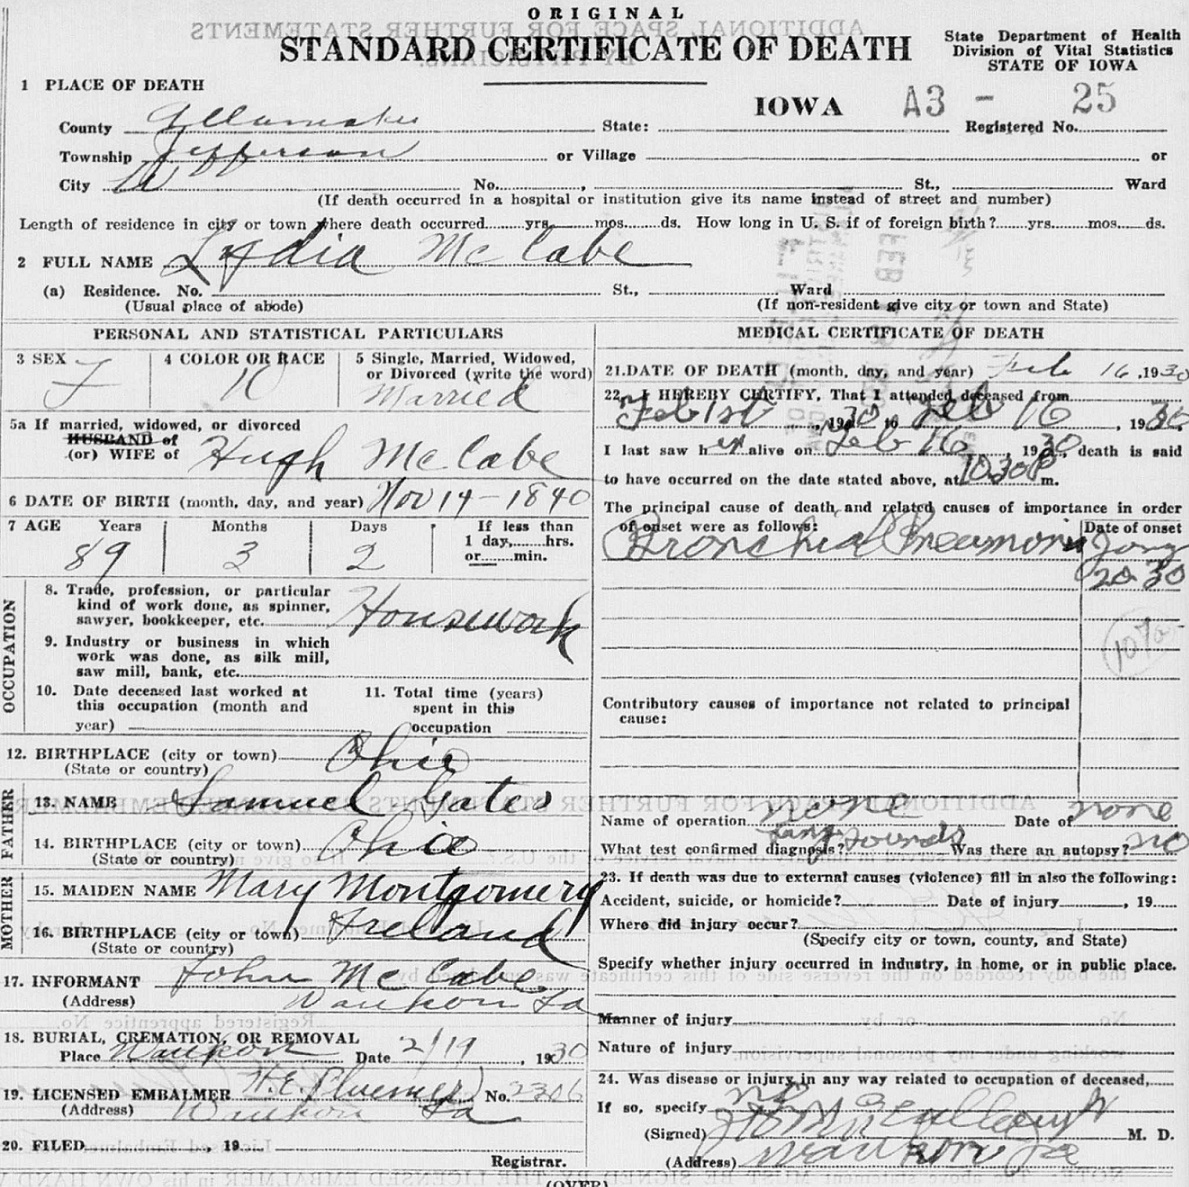 ORIGINAL
STANDARD CERTIFICATE OF DEATH
State Department of Health
Division of Vital Statistics
STATE OF IOWA
1 PLACE OF DEATH
IOWA A3 - 25
County Allamakee State: Registered No.
Township Jefferson or Village or
City No. , St., Ward
(If death occurred in a hospital or institution give its name instead of street and number)
Length of residence in city or town where death occurred yrs. mos. ds. How long in U. S. if of foreign birth? yrs. mos. ds.
2 FULL NAME Lydia McCabe
(a) Residence. No. St., Ward
(Usual place of abode) (If non-resident give city or town and State)
PERSONAL AND STATISTICAL PARTICULARS
3 SEX F
4 COLOR OR RACE
5 Single, Married, Widowed,
or Divorced (write the word)
Married
5a If married, widowed, or divorced
HUSBAND of
(or) WIFE of Hugh McCabe
6 DATE OF BIRTH (month, day, and year) Nov 14 - 1840
7 AGE Years Months Days If less than
1 day, hrs.
or min.
89 3 2
OCCUPATION
8. Trade, profession, or particular
kind of work done, as spinner,
sawyer, bookkeeper, etc. Housework
9. Industry or business in which
work was done, as silk mill,
saw mill, bank, etc.
10. Date deceased last worked at
this occupation (month and
year)
11. Total time (years)
spent in this
occupation
12. BIRTHPLACE (city or town) Ohio
(State or country)
FATHER
13. NAME Samuel Gates
14. BIRTHPLACE (city or town) Ohio
(State or country)
MOTHER
15. MAIDEN NAME Mary Montgomery
16. BIRTHPLACE (city or town) Ireland
(State or country)
17. INFORMANT John McCabe
(Address) Waukon Ia
18. BURIAL, CREMATION, OR REMOVAL
Place Waukon Date 2/19, 1930
19. LICENSED EMBALMER H.E. Pluemer No. 2306
(Address) Waukon Ia
20. FILED , 19
Registrar.
MEDICAL CERTIFICATE OF DEATH
21. DATE OF DEATH (month, day, and year) Feb 16, 1930
22. I HEREBY CERTIFY, That I attended deceased from
Feb 1st, 1930 to Feb 16, 1930
I last saw her alive on Feb 16 1930, death is said
to have occurred on the date stated above, at 10:30 P m.
The principal cause of death and related causes of importance in order
of onset were as follows: Date of onset
Bronchial Pneumonia Jany
20 30
107a
Contributory causes of importance not related to principal
cause:
Name of operation none Date of none
What test confirmed diagnosis? lung sounds Was there an autopsy? no
23. If death was due to external causes (violence) fill in also the following:
Accident, suicide, or homicide? Date of injury , 19
Where did injury occur?
(Specify city or town, county, and State)
Specify whether injury occurred in industry, in home, or in public place.
Manner of injury
Nature of injury
24. Was disease or injury in any way related to occupation of deceased,
If so, specify no
(Signed) M. D.
(Address) Waukon Ia
(OVER)